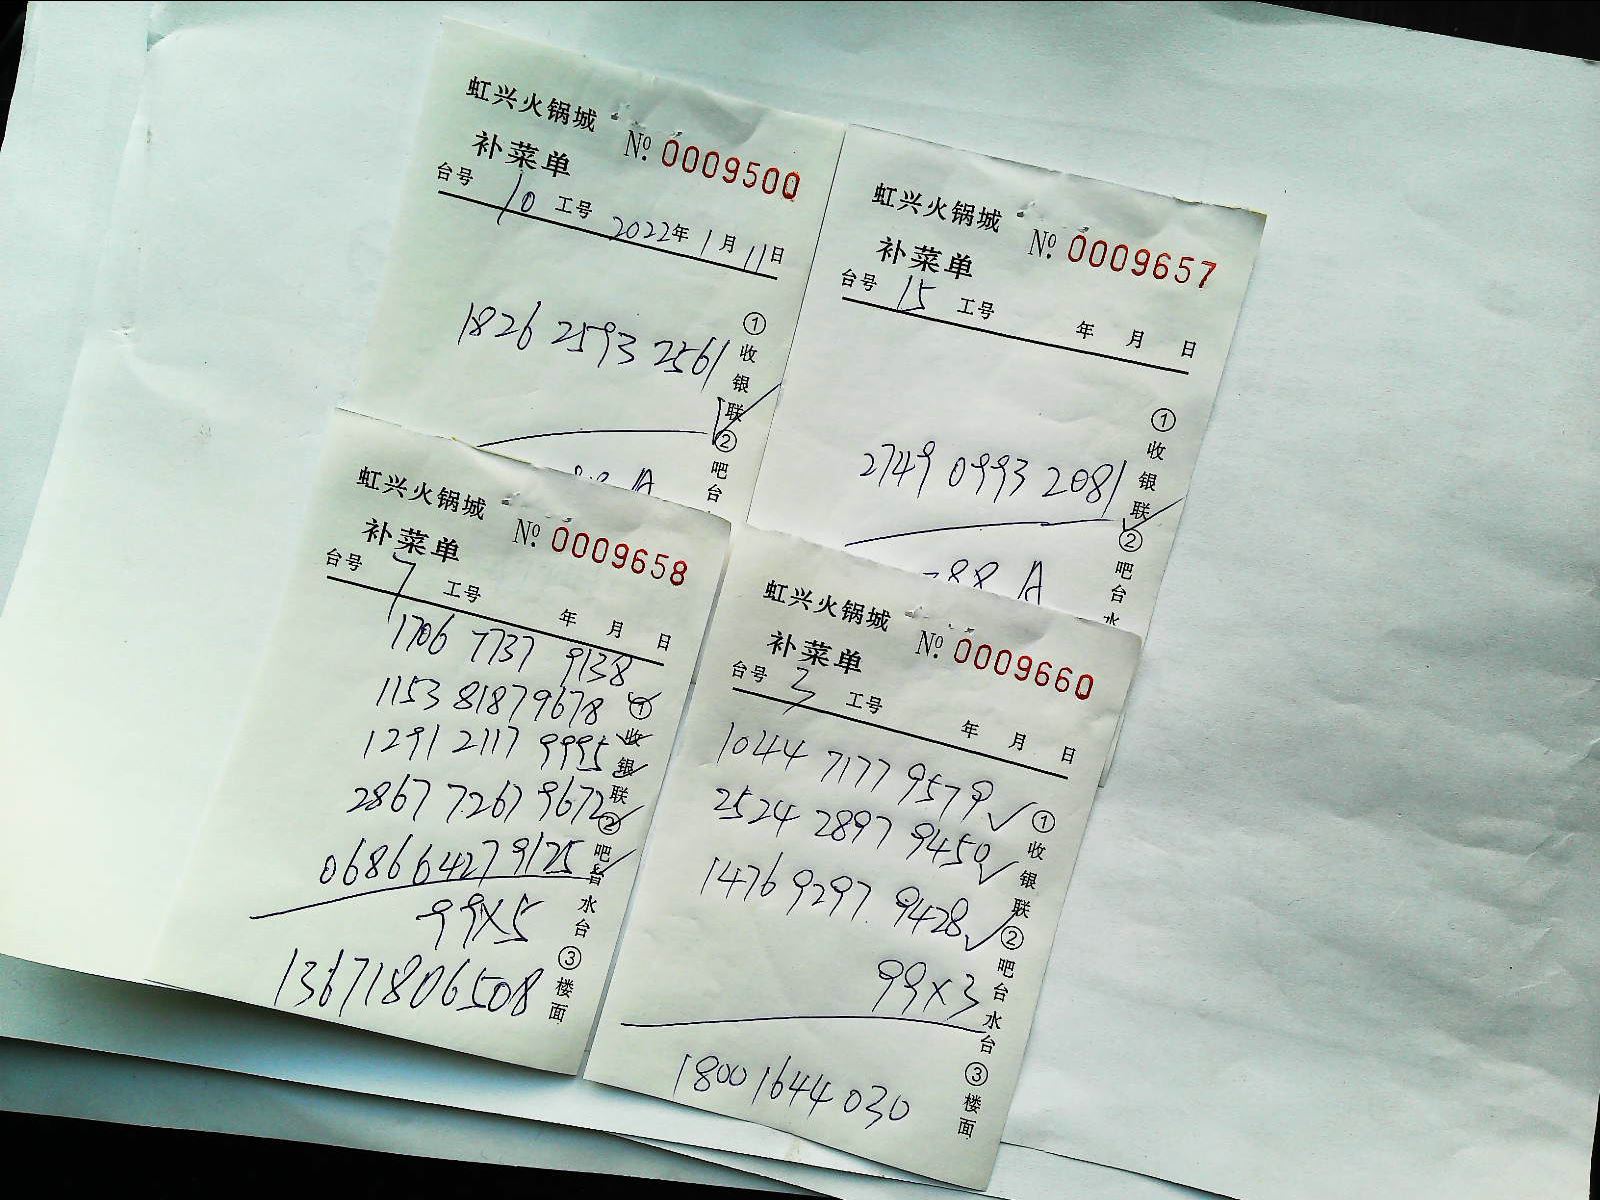 虹兴火锅城
补菜单 №. 0009500
台号 10 工号 2022年 1月 11日
1826 2593 2561
①收银联②吧台
88 A
虹兴火锅城
补菜单 №. 0009657
台号 15 工号 年 月 日
2749 0993 2081
①收银联②吧台水
88 A
虹兴火锅城
补菜单 №. 0009658
台号 7 工号 年 月 日
1706 7737 9138
1153 8187 9678
1291 2117 9995
2867 7267 9672
0686 6427 9125
99×5
13671806508
①收银联②吧台水台③楼面
虹兴火锅城
补菜单 №. 0009660
台号 3 工号 年 月 日
1044 7177 9579
2524 2897 9450
1476 9297 9428
99×3
18001644030
①收银联②吧台水台③楼面